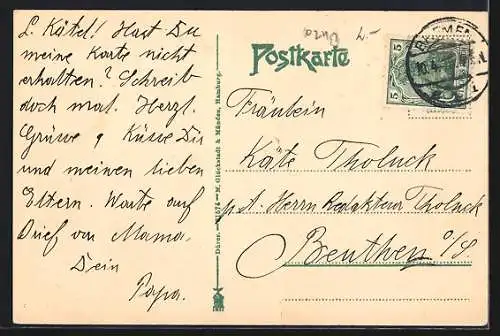 L. Kätel! Hast Du
meine Karte nicht
erhalten? Schreib
doch mal. Herzl.
Grüsse & Küsse Dir
und meinen lieben
Eltern. Warte auf
Brief von Mama.
Dein
Papa.
Postkarte
BARMEN
5 5
Fräulein
Käte Tholuck
p. A. Herrn Redakteur Tholuck
Beuthen O/S.
M. Glückstadt & Münden, Hamburg.